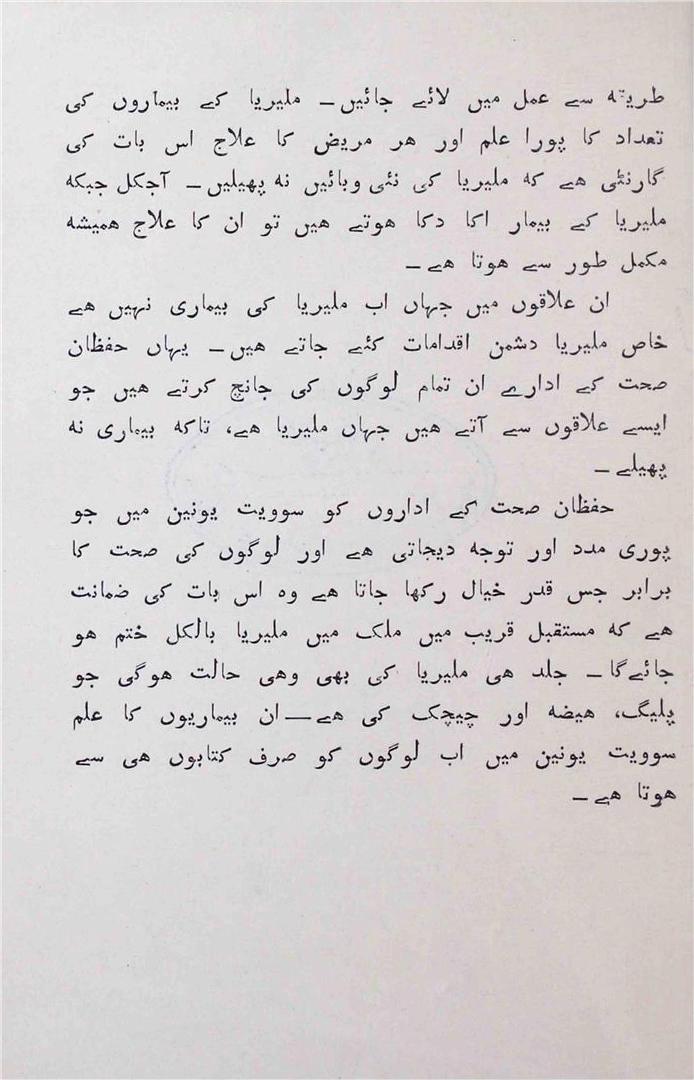 طریقه سے عمل میں لائے جائیں – ملیریا کے بیماروں کی
تعداد کا پورا علم اور هر مریض کا علاج اس بات کی
گارنٹی هے که ملیریا کی نئی وبائیں نه پھیلیں – آجکل جبکه
ملیریا کے بیمار اکا دکا هوتے هیں تو ان کا علاج همیشه
مکمل طور سے هوتا هے –
ان علاقوں میں جہاں اب ملیریا کی بیماری نہیں هے
خاص ملیریا دشمن اقدامات کئے جاتے هیں – یہاں حفظان
صحت کے ادارے ان تمام لوگوں کی جانچ کرتے هیں جو
ایسے علاقوں سے آتے هیں جہاں ملیریا هے، تاکه بیماری نه
پھیلے –
حفظان صحت کے اداروں کو سوویت یونین میں جو
پوری مدد اور توجه دیجاتی هے اور لوگوں کی صحت کا
برابر جس قدر خیال رکھا جاتا هے وه اس بات کی ضمانت
هے که مستقبل قریب میں ملک میں ملیریا بالکل ختم هو
جائےگا – جلد هی ملیریا کی بھی وهی حالت هوگی جو
پلیگ، هیضه اور چیچک کی هے — ان بیماریوں کا علم
سوویت یونین میں اب لوگوں کو صرف کتابوں هی سے
هوتا هے –